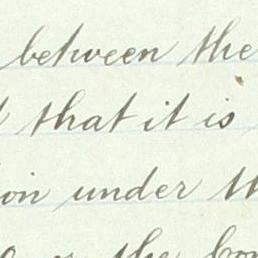 between the
that it is
under
the